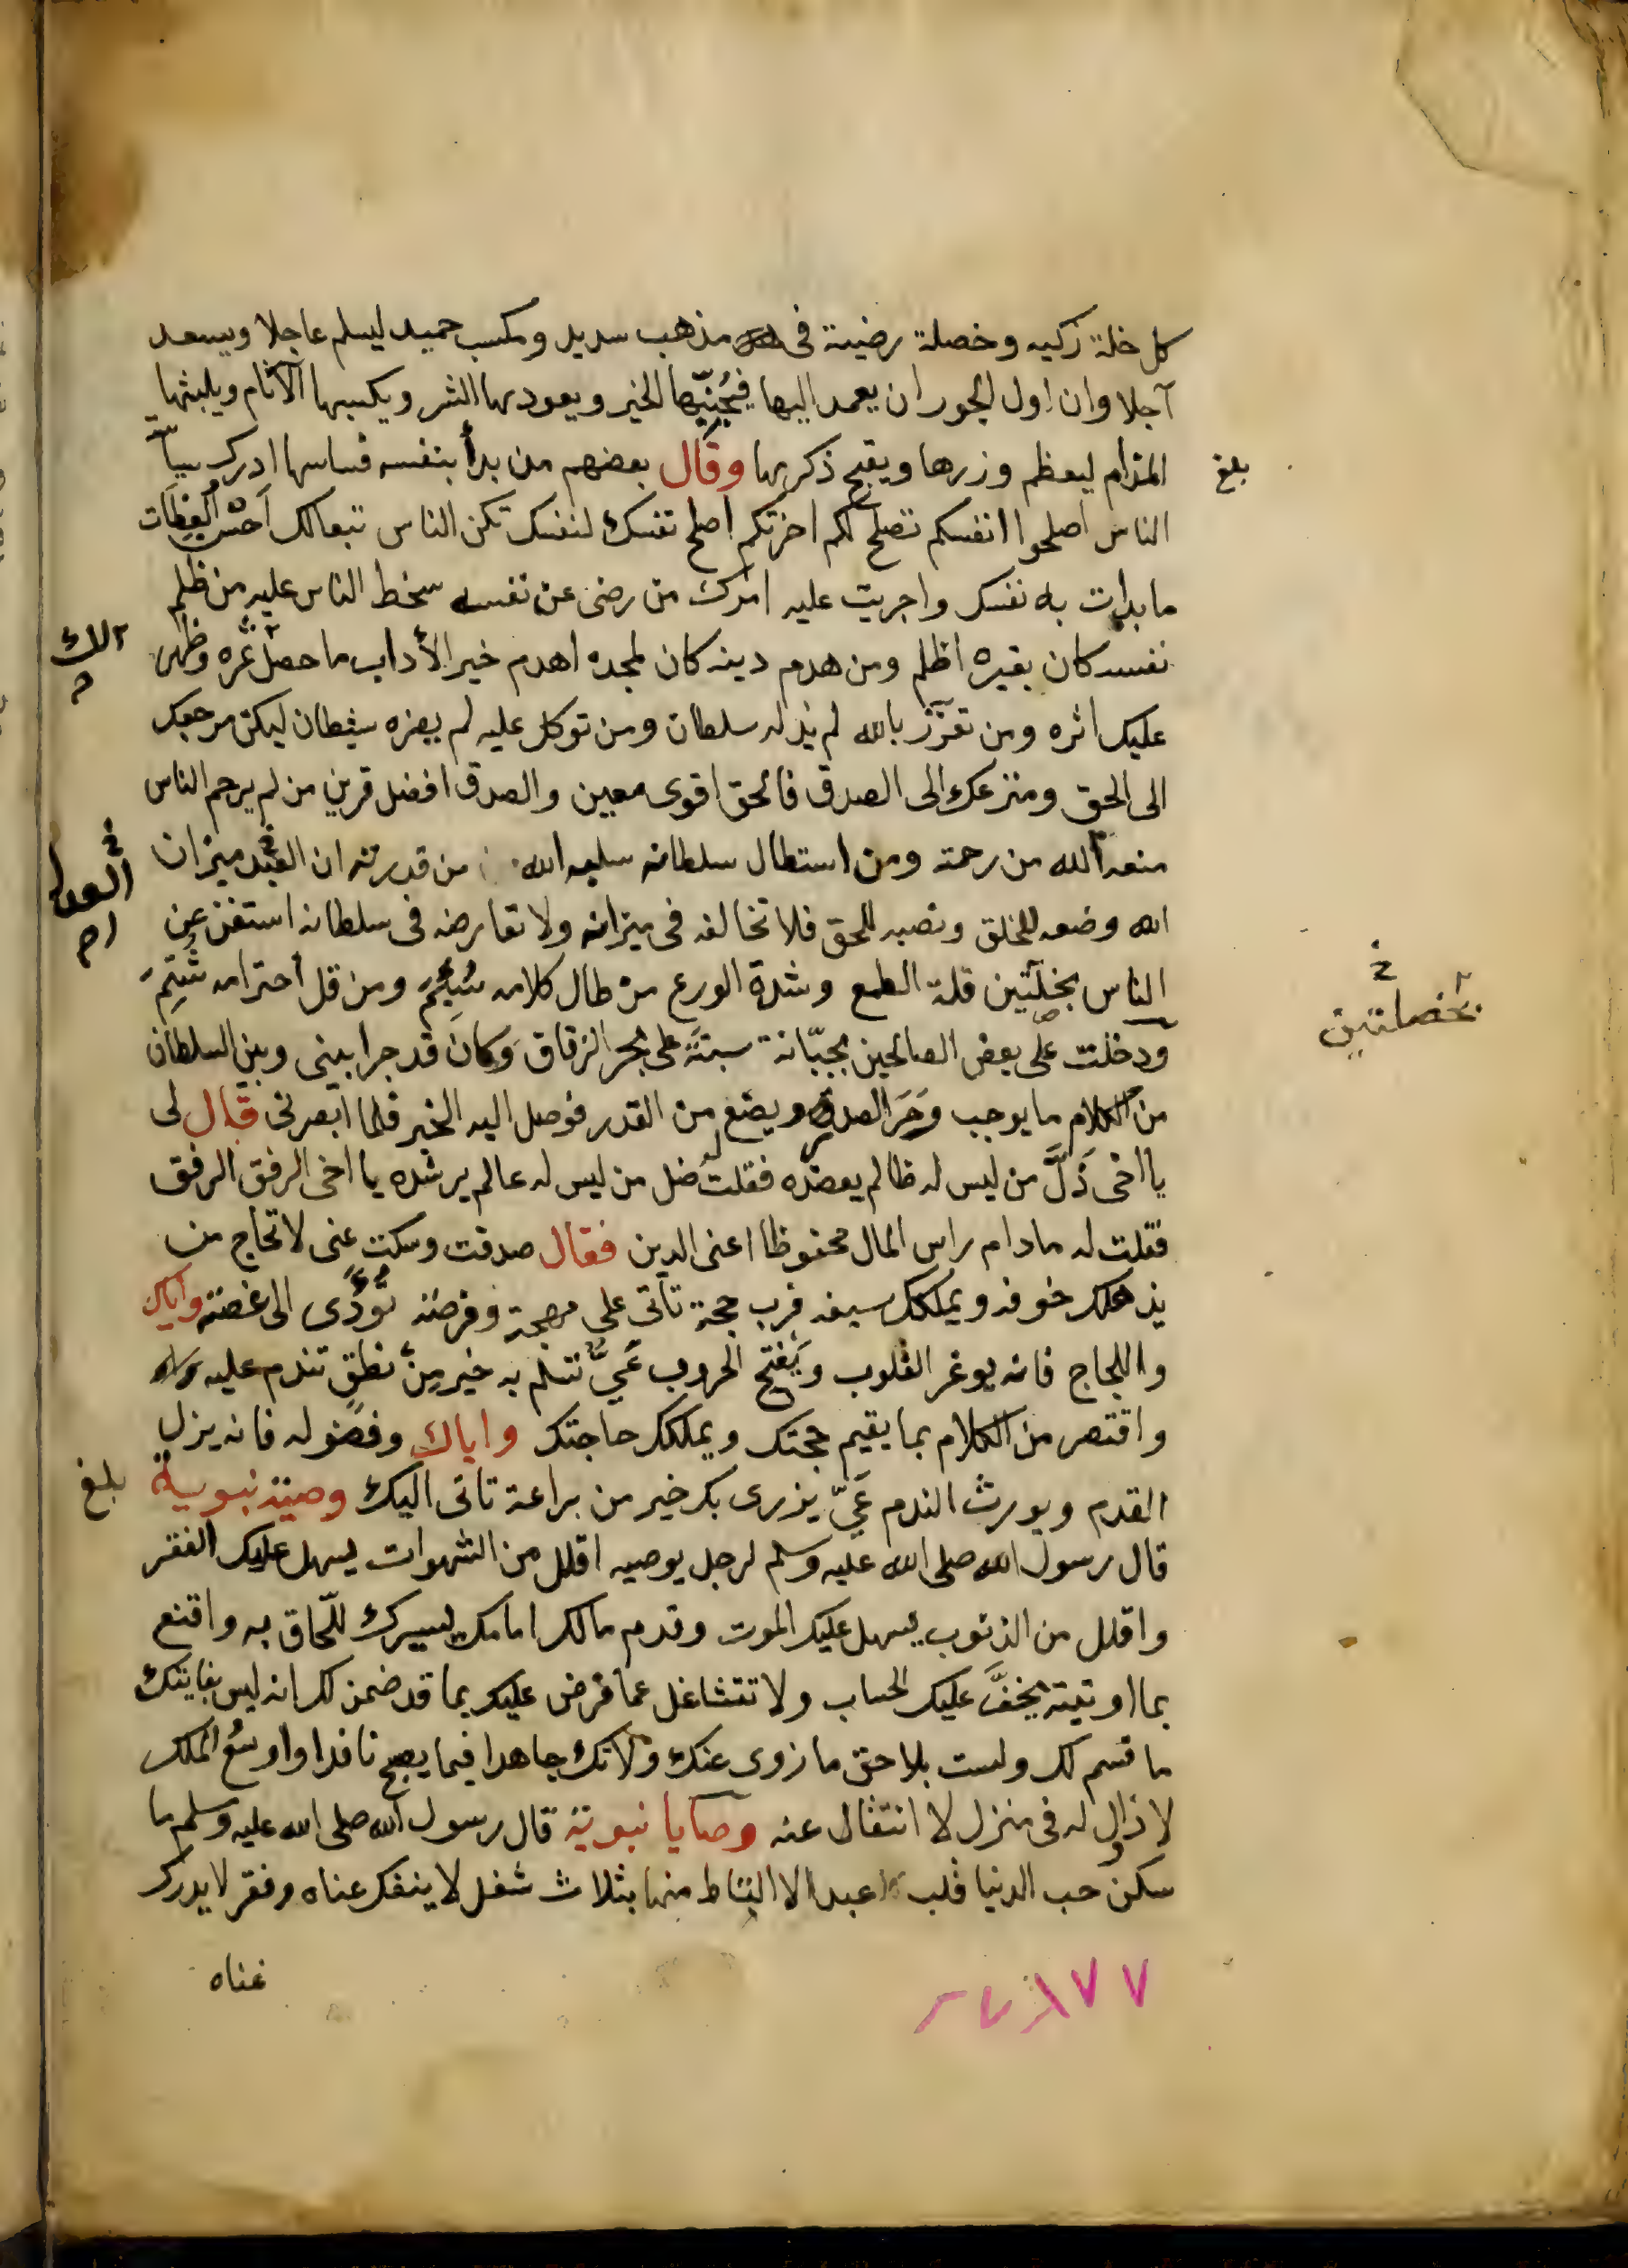 كل خلة زكيه وخصلة رضية فى مذهب سديد ومكسب حميد ليسلم عاجلا ويسعد
آجلا وان اول الجور ان يعمد اليها فيُجنِّبها الخير ويعودها الشر ويكسبها الآثام ويلبثها
المذام ليعظم وزرها ويقبح ذكرها وقال بعضهم من بدأ بنفسه فساسها ادرك سياسة
بلغ
الناس اصلحوا انفسكم تصلح لكم اخرتكم اصلح نفسك لنفسك تكن الناس تبعا لك احسن العظات
ما بدات به نفسك واجريت عليه امرك من رضى عن نفسه سخط الناس عليه من ظلم
نفسه كان بغيره اظلم ومن هدم دينه كان لمجده اهدم خير الأداب ما حصل ثمره وظهر
لك
عليك اثره ومن تعزّز بالله لم يذله سلطان ومن توكل عليه لم يضره شيطان ليكن مرجعك
الى الحق ومنزعك الى الصدق فالحق اقوى معين والصدق افضل قرين من لم يرحم الناس
منعه الله من رحمته ومن استطال سلطانه سلبه الله من قدرته ان العبد ميزان
العدل
الله وضعه للخلق ونصبه للحق فلا تخالفه فى ميزانه ولا تعارضه فى سلطانه استغن عن
الناس بخلتين قلة الطمع وشدة الورع من طال كلامه سُئِمَ ومن قل احترامه شُتِمَ
بخصلتين
ودخلت على بعض الصالحين بجبّانة سبتة على بحر الزقاق وكان قد جرا بينى وبين السلطان
من الكلام ما يوجب وَحَر الصدور ويضع من القدر فوصل اليه الخبر فلما ابصرنى قال لى
يا اخى ذَلَّ من ليس له ظالم يعضده فقلت له ضل من ليس له عالم يرشده يا اخى الرفق الرفق
فقلت له ما دام راس المال محفوظا اعنى الدين فقال صدقت وسكت عنى لا تحاج من
يذهلك خوفه ويملكك سيفه فرب حجة تأتى على مهجة وفرصة تؤدّى الى غصة واياك
واللجاج فانه يوغر القلوب ويُفتح الحروب عَىّ تسلم به خير من نطق تندم عليه
واقتصر من الكلام بما يقيم حجتك ويملكك حاجتك واياك وفضوله فانه يزل
القدم ويورث الندم عَىّ يزرى بك خير من براعة تاتى اليك وصية نبوية
بلغ
قال رسول الله صلى الله عليه وسلم لرجل يوصيه اقلل من الشهوات يسهل عليك الفقر
واقلل من الذنوب يسهل عليك الموت وقدم مالك امامك ليسرك للّحاق به واقنع
بما اوتيته يخفَّ عليك الحساب ولا تتشاغل عما فرض عليك بما قد ضمن لك انه ليس بفايتك
ما قسم لك ولست بلاحق ما زوى عنك ولا تك جاهدا فيما يصبح نافدا واوسع لملك
لا زوال له فى منزل لا انتقال عنه وصايا نبوية قال رسول الله صلى الله عليه وسلم ما
سكن حب الدنيا قلب عبد الا التاط منها بثلاث شغل لا ينفك عناه وفقر لا يدرك
غناه